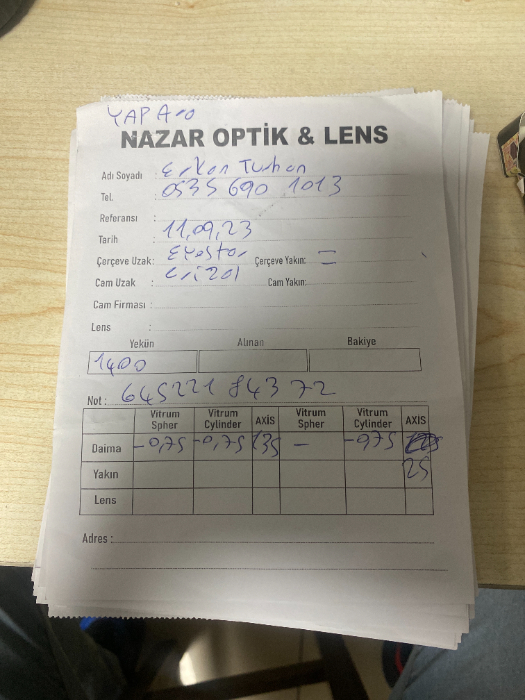 YAP
NAZAR OPTİK & LENS
Adı Soyadı : Erkan Turhan
Tel. : 0535 690 1013
Referansı :
Tarih : 11,09,23
Çerçeve Uzak: Çerçeve Yakın: =
Cam Uzak : Crizal Cam Yakın:
Cam Firması :
Lens :
Yekün Alınan Bakiye
1400
Not : 645221 84372
Vitrum Spher Vitrum Cylinder AXİS Vitrum Spher Vitrum Cylinder AXIS
Daima -0,75 -0,75 135 - -0,75
Yakın 25
Lens
Adres :